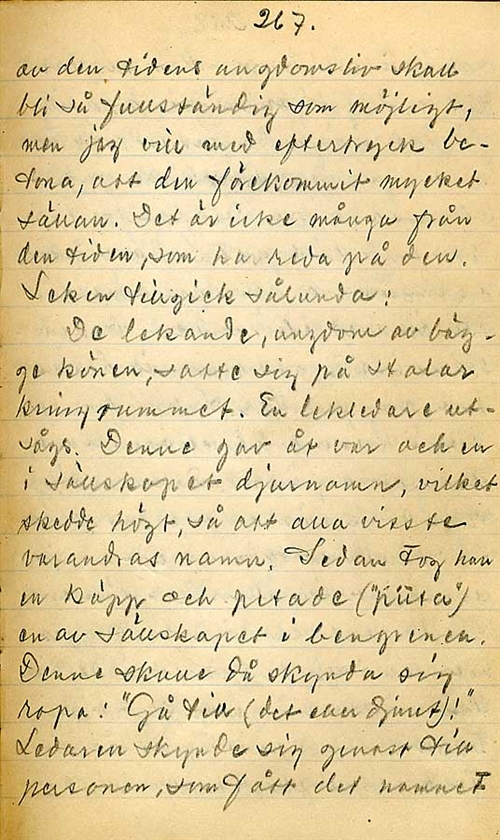 267.
av den tidens ungdomsliv skall
bli så fullständig som möjligt,
men jag vill med eftertryck be-
tona, att den förekommit mycket
sällan. Det är icke många från
den tiden, som ha reda på den.
Leken tillgick sålunda:
De lekande, ungdom av båg-
ge könen, satte sig på stolar
kring rummet. En lekledare ut-
sågs. Denne gav åt var och en
i sällskapet djurnamn, vilket
skedde högt, så att alla visste
varandras namn. Sedan tog han
en käpp och petade ("piita")
en av sällskapet i bengrenen.
Denne skulle då skynda sig
ropa: "Gå till (det eller djuret)!"
Ledaren skynde sig genast till
personen, som fått det namnet